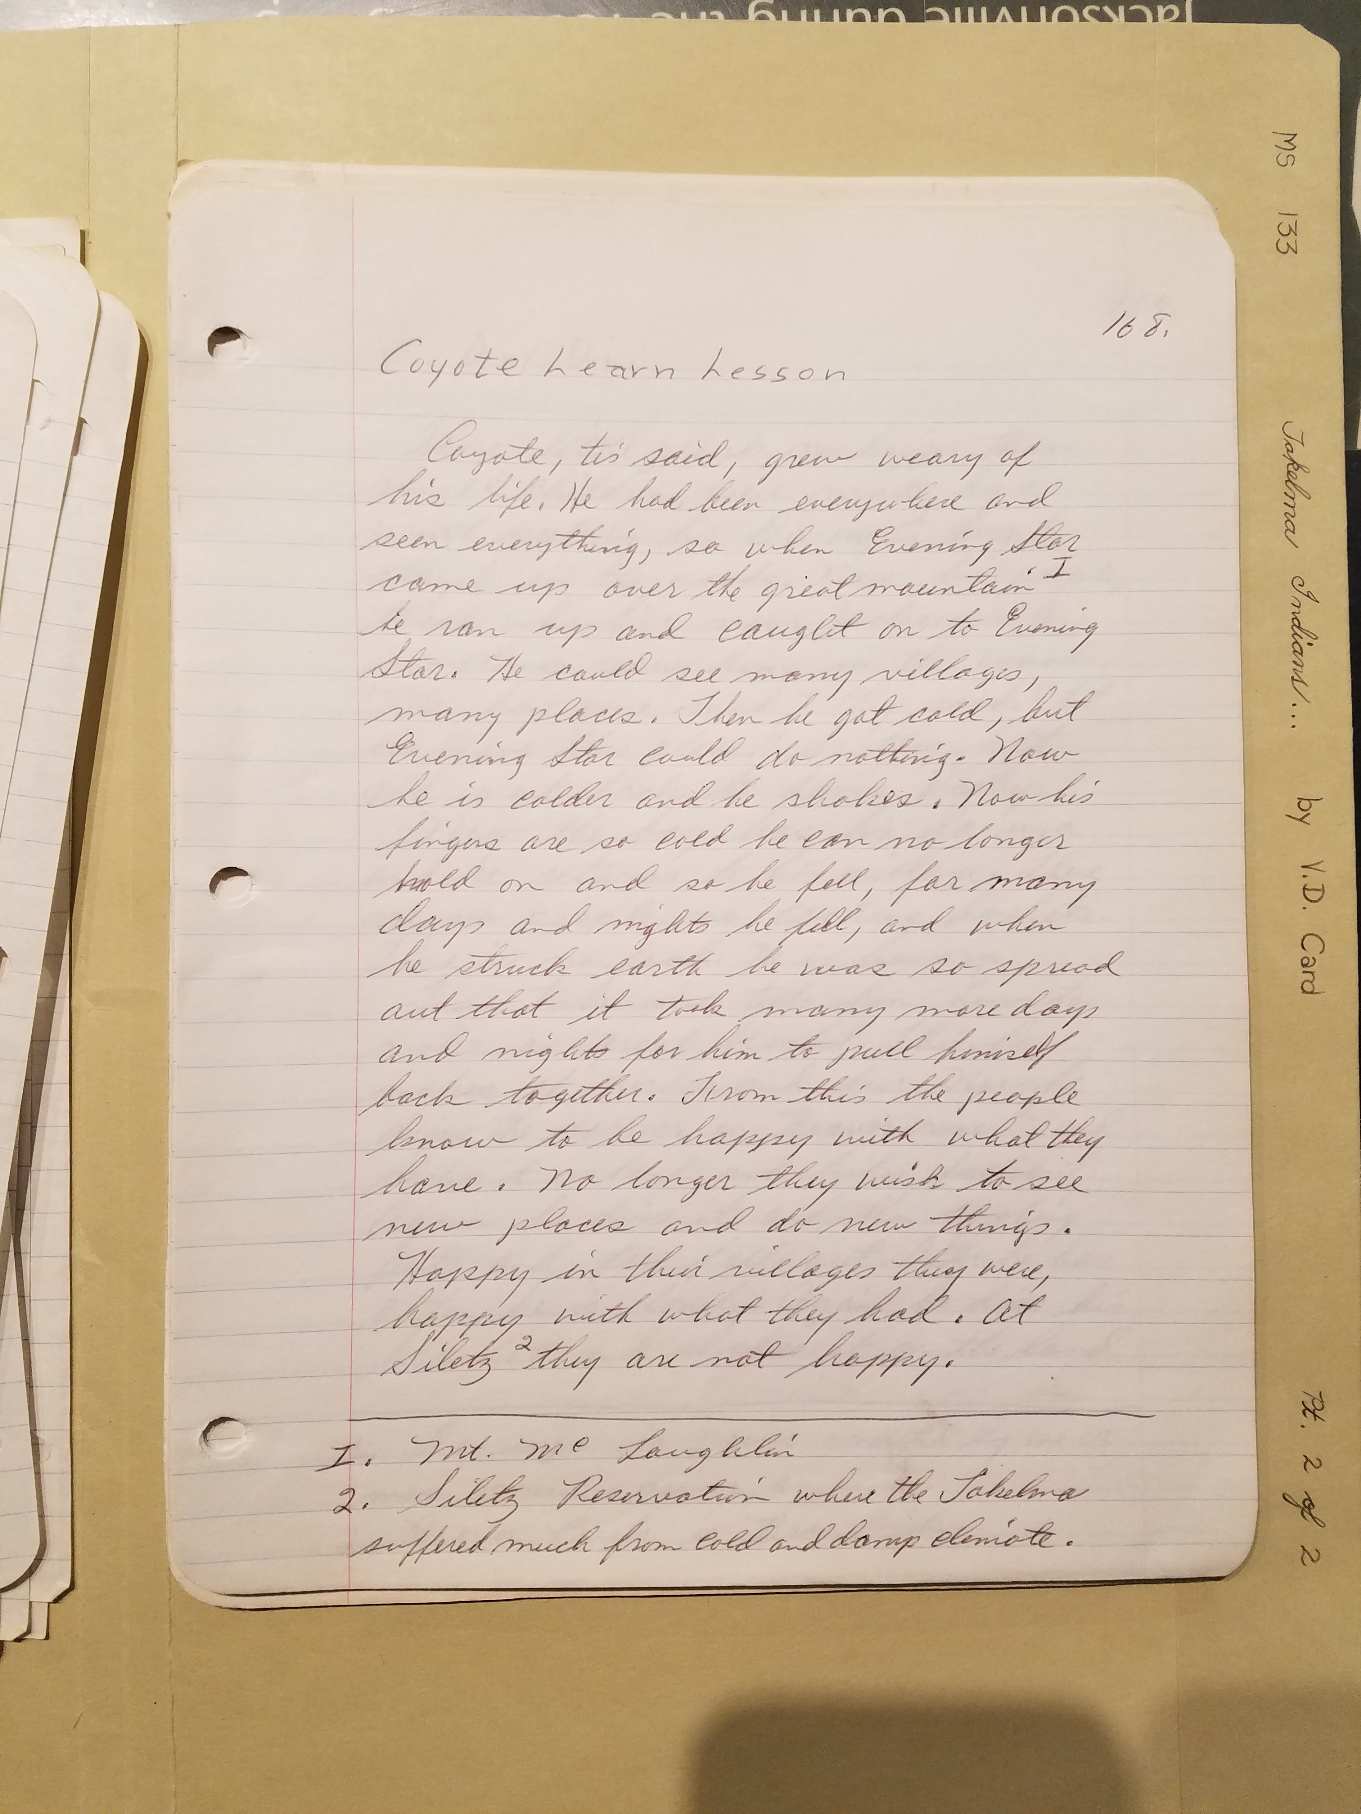 Jacksonville during the
168.
Coyote Learn Lesson
Coyote, tis said, grew weary of
his life. He had been everywhere and
seen everything, so when Evening Star
came up over the great mountain I
he ran up and caught on to Evening
Star. He could see many villages,
many places. Then he got cold, but
Evening Star could do nothing. Now
he is colder and he shakes. Now his
fingers are so cold he can no longer
hold on and so he fell, for many
days and nights he fell, and when
he struck earth he was so spread
out that it took many more days
and nights for him to pull himself
back together. From this the people
know to be happy with what they
have. No longer they wish to see
new places and do new things.
Happy in their villages they were,
happy with what they had. At
Siletz 2 they are not happy.
I. Mt. Mc Loughlin
2. Siletz Reservation where the Takelma
suffered much from cold and damp climate.
MS 133 Takelma Indians... by V.D. Card Pt. 2 of 2